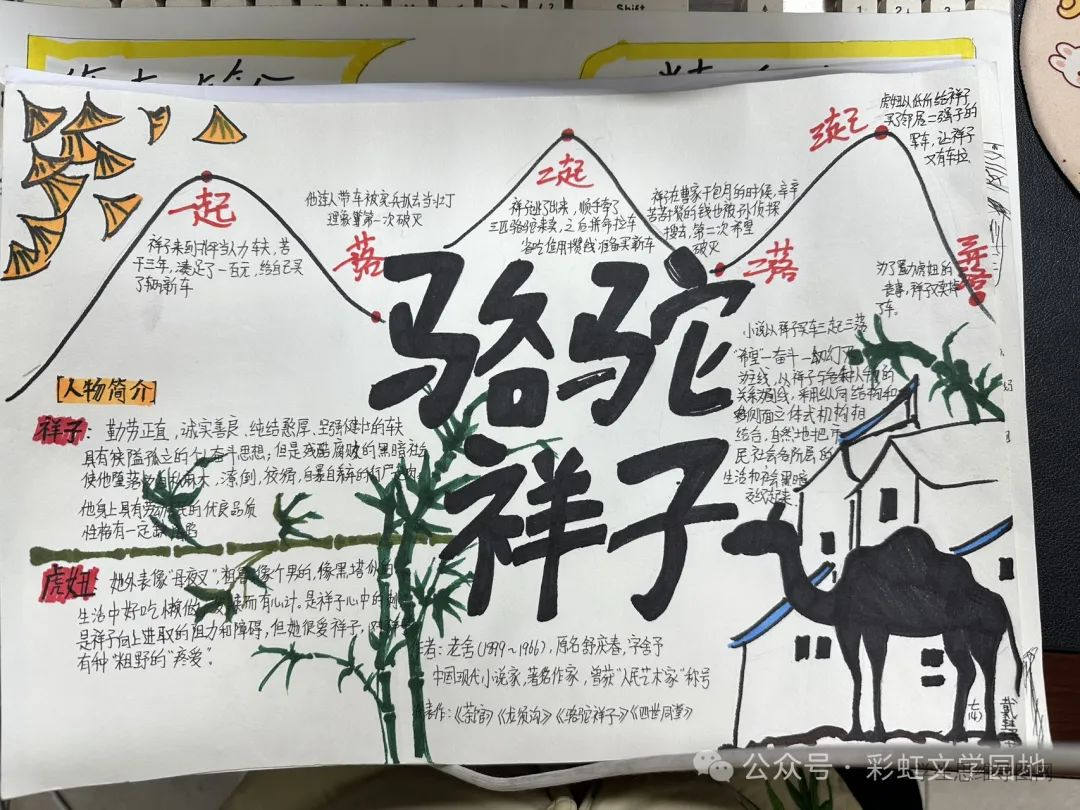 一起
祥子来到北平当人力车夫，苦
干三年，凑足了一百元，给自己买
了辆新车
他连人带车被宪兵抓去当壮丁
理想第一次破灭
一落
二起
祥子
三匹骆驼来卖，之后拼命拉车
省吃俭用攒钱准备买新车
祥子在曹家干包月的时候，辛辛
苦苦攒的钱也被孙侦探
搜去，第二次希望
破灭
二落
三起
虎妞以低价给祥子
买了邻居二强子的
黑车，让祥子
又有车拉
为了置办虎妞的
丧事，祥子又卖掉
了车。
骆驼
祥子
小说以祥子买车三起三落
“希望”—奋斗—
为主线，以祥子与各种人物的
关系为副线，采用纵向结构和
多侧面立体式机构相
结合，自然地把市
民社会各阶层的
生活和社会黑暗
交织起来
人物简介
祥子：勤劳正直，诚实善良、纯结憨厚、坚强健壮的车夫
具有狭隘孤立的个人奋斗思想，但是残酷腐败的黑暗社会
使他堕落
潦倒，狡猾，自暴自弃的行尸走肉
他身上具有劳动人民的优良品质
性格有一定
虎妞：她外表像“母夜叉”，粗
像个男的，像黑塔似的
生活中好吃懒做
而有心计。是祥子心中的
是祥子向上进取的阻力和障碍，但她很爱祥子，对祥子
有种“粗野的“疼爱”。
作者：老舍（1899~1966），原名舒庆春，字舍予
中国现代小说家，著名作家，曾获“人民艺术家”称号
代表作：《茶馆》《龙须沟》《骆驼祥子》《四世同堂》
公众号·彩虹文学园地